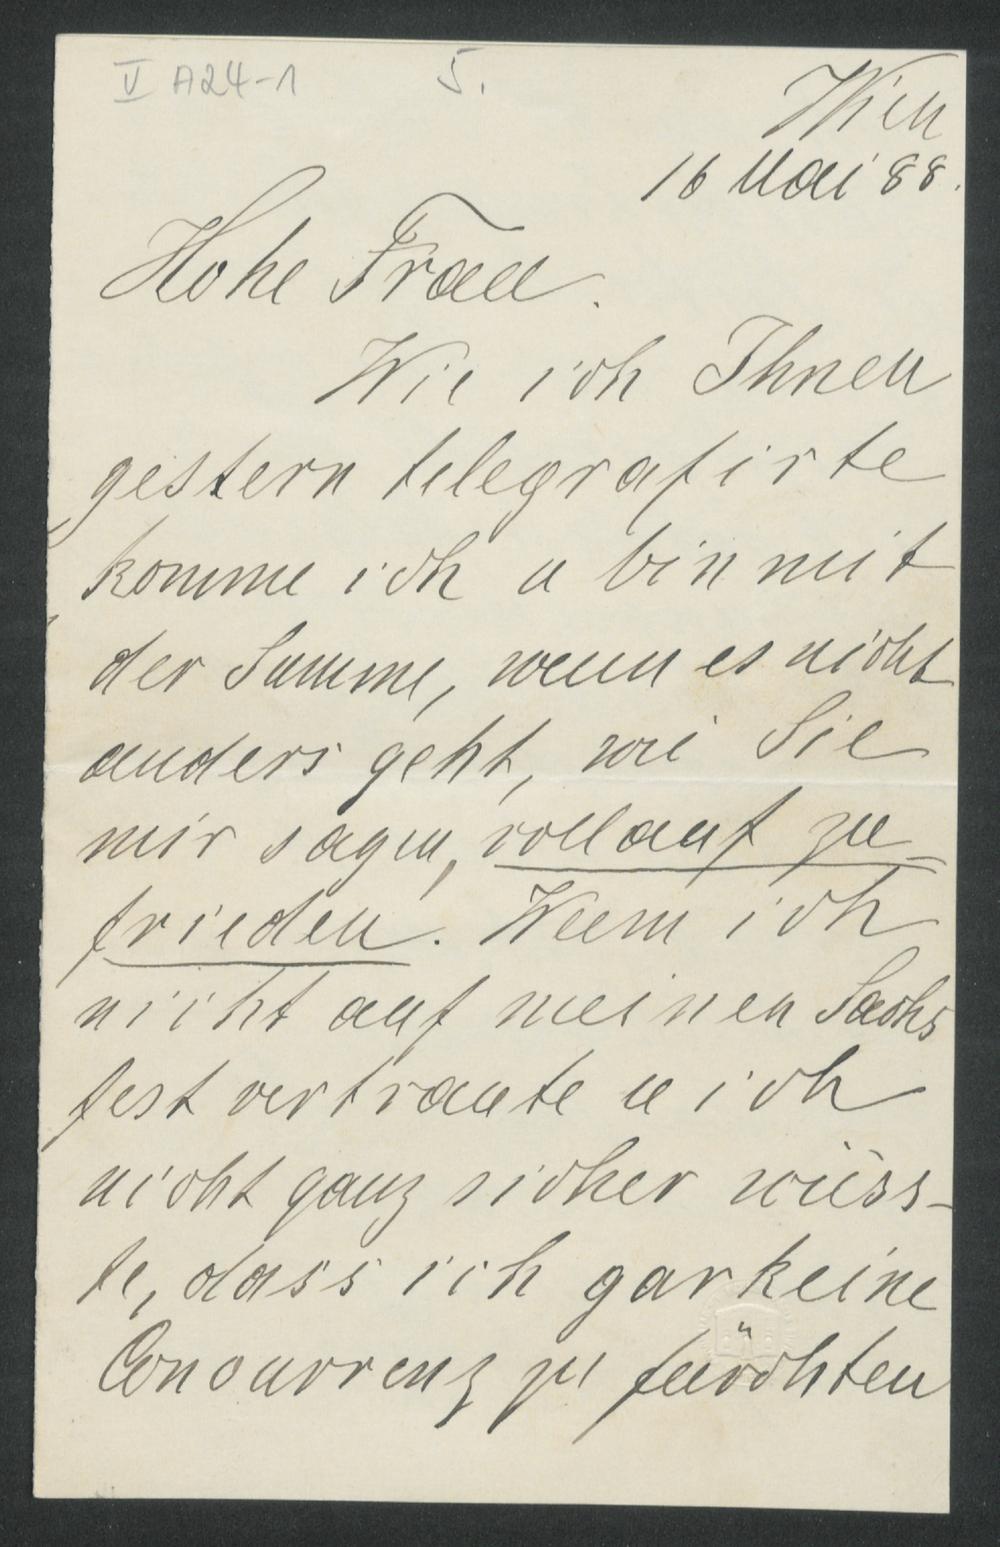 V A24-1 5.
Wien
16 Mai 88.
Hohe Frau.
Wie ich Ihnen
gestern telegrafirte
komme ich u bin mit
der Summe, wenn es nicht
anders geht, wie Sie
mir sagen, vollauf zu-
frieden. Wenn ich
nicht auf meinen Sachs
fest vertraute u ich
nicht ganz sicher wüss-
te, dass ich gar keine
Concurrenz zu fürchten